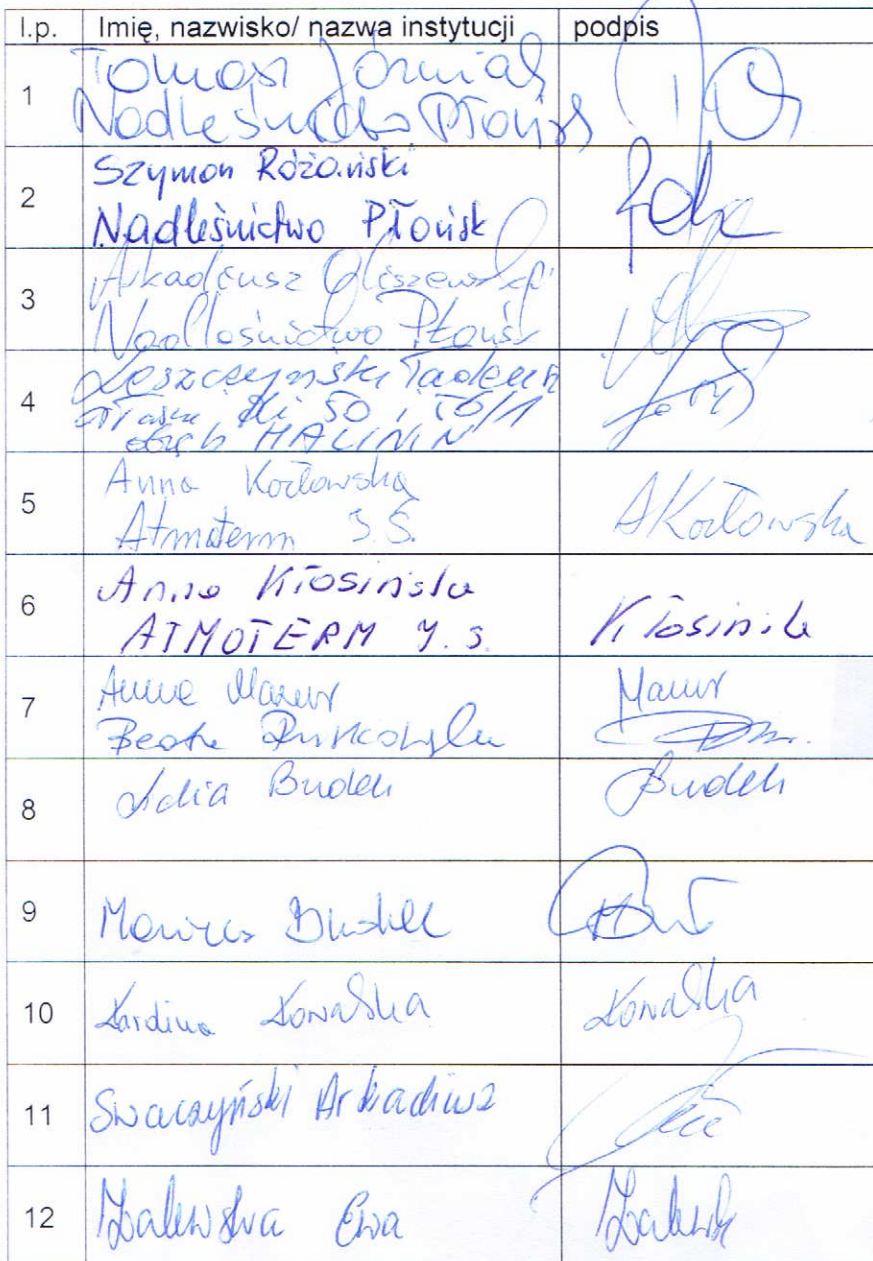 l.p. Imię, nazwisko/ nazwa instytucji podpis
1 Tomasz Józwiak
Nadleśnictwo Płońsk
2 Szymon Różański
Nadleśnictwo Płońsk
3 Arkadiusz Oliszewski
Nadleśnictwo Płońsk
4 Leszczyński Tadeusz
Dz 50, 
obręb MALININ
5 Anna Kozłowska AKozłowska
Atmoterm
6 Anna Kłosińska
ATMOTERM Kłosińska
7 Anna Mazur Mazur
Beata Rutkowska
8 Lidia Budek Budek
9 Mariusz Budek
10 Karolina Kowalska Kowalska
11 Swaczyński Arkadiusz
12 Zalewska Ewa Zalewsk